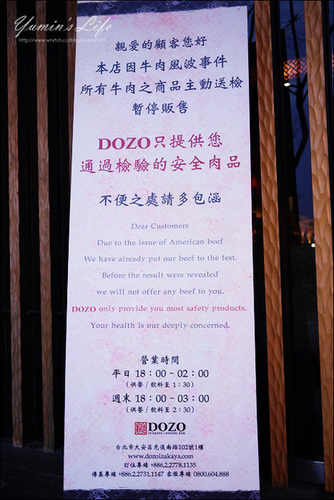 Yumin's Life
親愛的顧客您好
本店因牛肉風波事件
所有牛肉之商品主動送檢
暫停販售
DOZO只提供您
通過檢驗的安全肉品
不便之處請多包涵
Dear Customers
Due to the issue of American beef
We have already put our beef to the test.
Before the result were revealed
we will not offer any beef to you.
DOZO only provide you most safety products.
Your health is our deeply concerned.
營業時間
平日 18:00-02:00
(供餐/飲料至1:30)
週末 18:00-03:00
(供餐/飲料至2:30)
DOZO
台北市大安區光復南路102號1樓
www.dozoizakaya.com
訂位專線 +886.2.2778.1135
傳真專線 +886.2.2731.1147 客服專線 0800.604.888